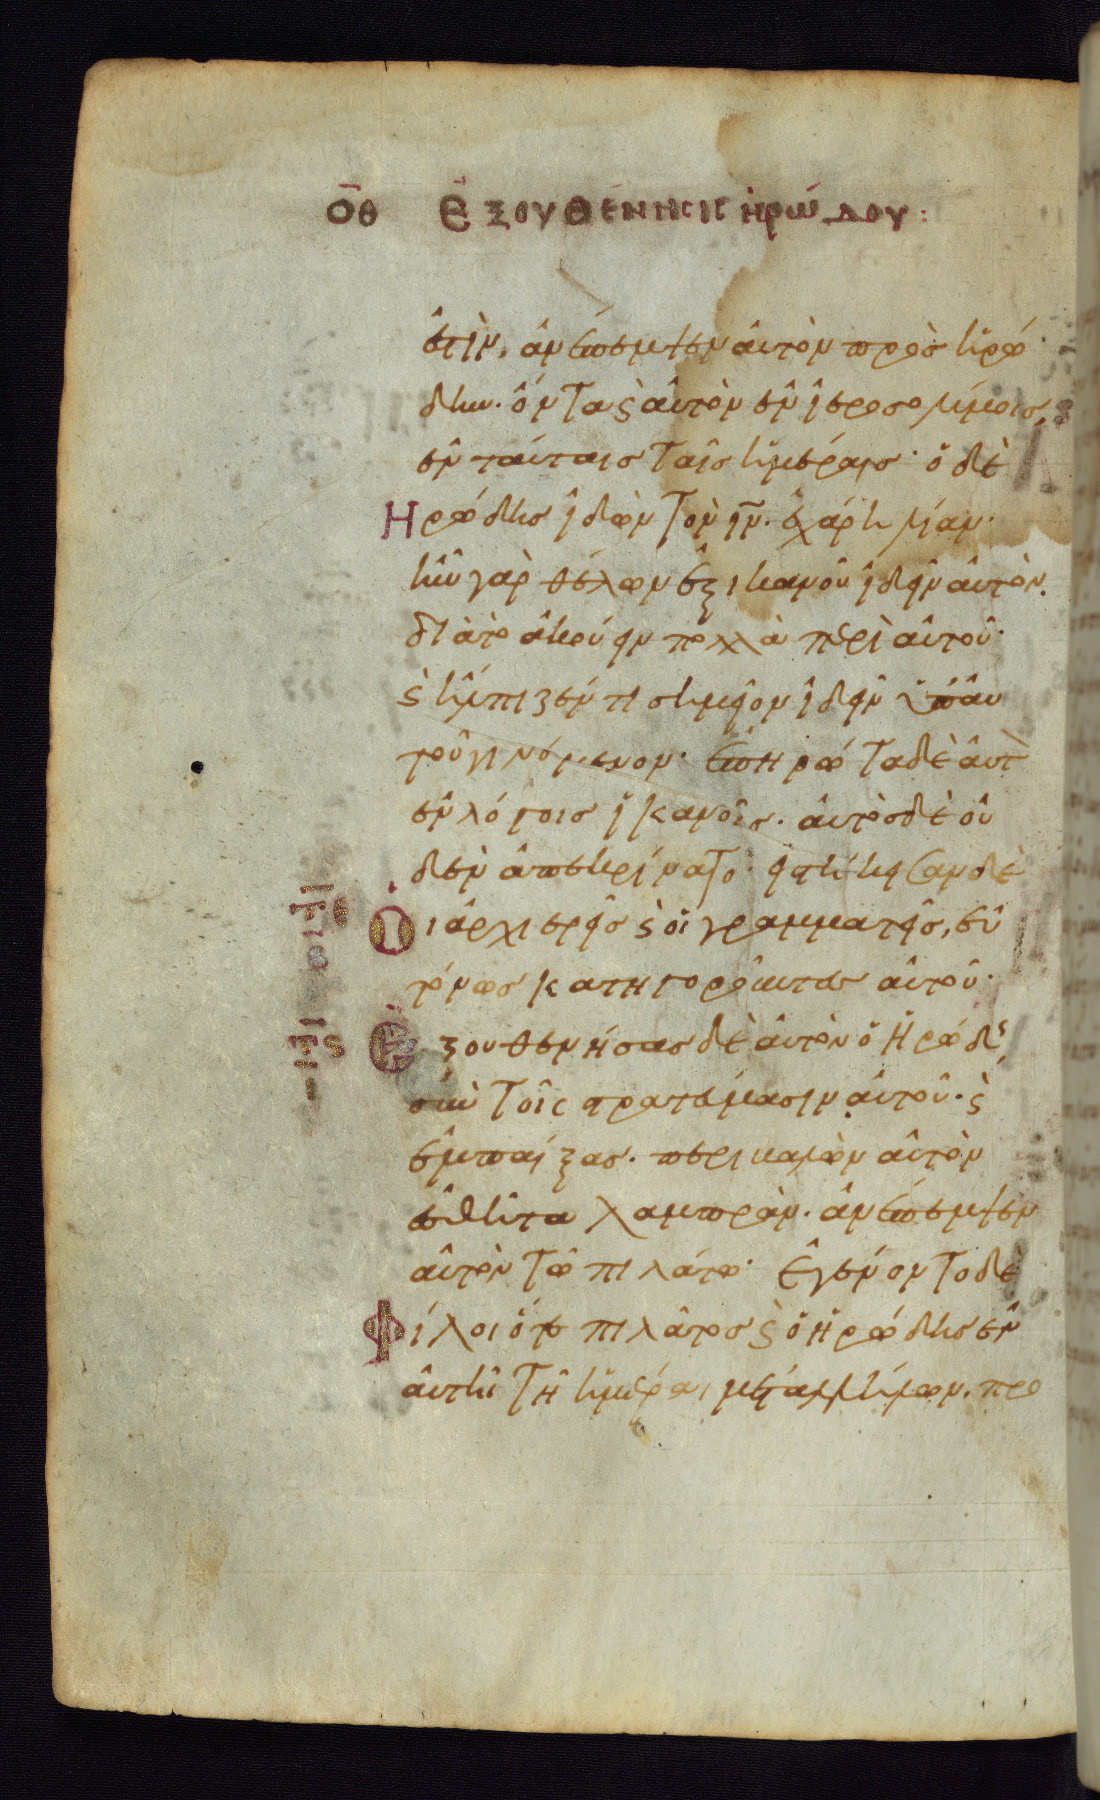 ο̄θ Ἐξουθένησις ἡρώδου:
ἐστὶν, ἀνέπεμψεν αὐτὸν πρὸς ἡρώ
δην. ὄντα ϛ αὐτὸν ἐν ἱεροσολύμοις,
ἐν ταύταις ταῖς ἡμέραις· ὁ δὲ
Ηρώδης ἰδὼν τὸν ιν̄. ἐχάρη λίαν·
ἦν γὰρ θέλων ἐξ ἱκανοῦ ἰδεῖν αὐτὸν.
διὰ τὸ ἀκούειν πολλὰ περὶ αὐτοῦ·
ϛ ἤλπιζέν τι σημεῖον ἰδεῖν ὑπ' αὐ
τοῦ γινόμενον· ἐπηρώτα δὲ αὐτὸ
ἐν λόγοις ἱκανοῖς. αὐτὸς δὲ οὐ
δὲν ἀπεκρίνατο· εἱστήκεισαν δὲ
τε
Οι ἀρχιερεῖς ϛ οἱ γραμματεῖς, εὐ
τόνως κατηγοροῦντες αὐτοῦ·
τϛ
Ἐξουθενήσας δὲ αὐτὸν ὁ Ἡρώδης
σὺν τοῖς στρατεύμασιν αὐτοῦ. ϛ
ἐμπαίξας. περιβαλὼν αὐτὸν
ἐσθῆτα λαμπρὰν. ἀνέπεμψεν
αὐτὸν τῷ πιλάτω· ἐγένοντο δὲ
Φίλοι ὅτε πιλᾶτος ϛ ὁ ἡρώδης ἐν
αὐτῆ τῆ ἡμέραι μετ' ἀλλήλων. προ